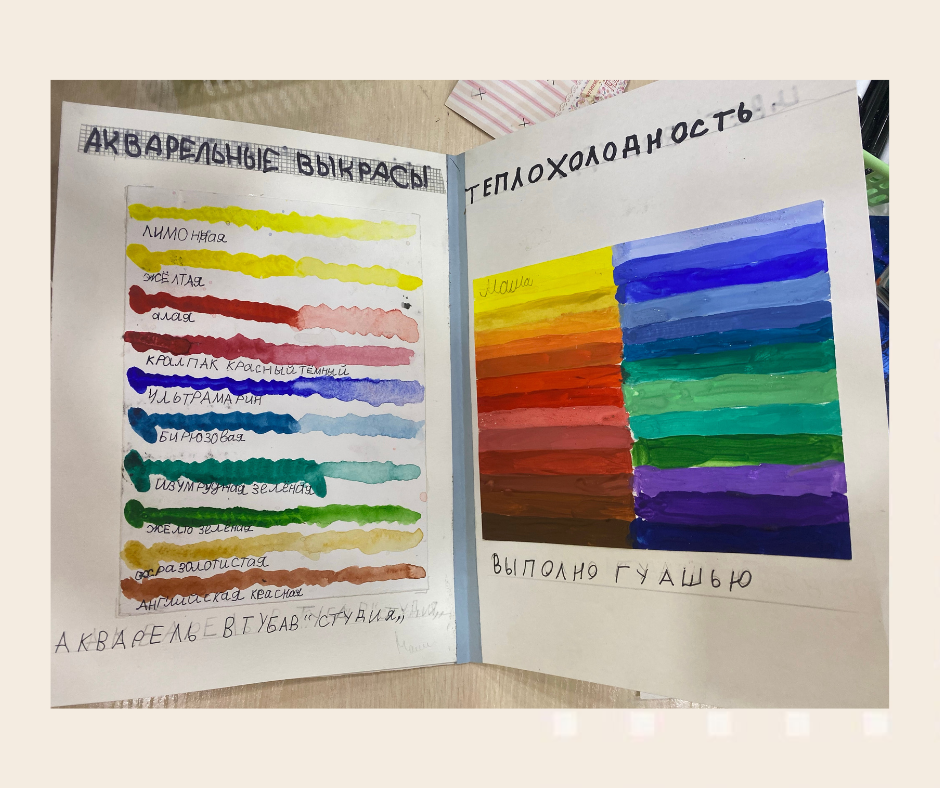 АКВАРЕЛЬНЫЕ ВЫКРАСЫ
ЛИМОННАЯ
ЖЁЛТАЯ
алая
КРАПЛАК КРАСНЫЙ ТЁМНЫЙ
УЛЬТРАМАРИН
БИРЮЗОВАЯ
ИЗУМРУДНАЯ ЗЕЛЁНАЯ
ЖЁЛТО ЗЕЛЁНАЯ
охра золотистая
АНГЛИЙСКАЯ КРАСНАЯ
АКВАРЕЛЬ В ТУБАВ "СТУДИЯ„
Маши
ТЕПЛОХОЛОДНОСТЬ
Маша
ВЫПОЛНО ГУАШЬЮ